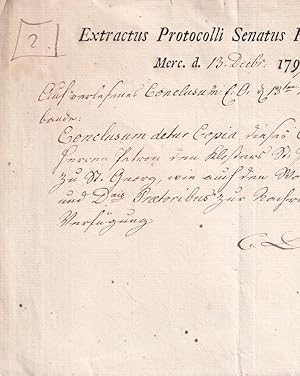 2
Extractus Protocolli Senatus
Merc. d. 13. Decbr. 179
Auf verlesenes Conclusum C. O. d 13ten
Conclusum detur Copia dieses
Herren Patron des Klosters St.
zu St. Georg, wie auch den
und Dnis Praetoribus zur Nachr
Verfügung.